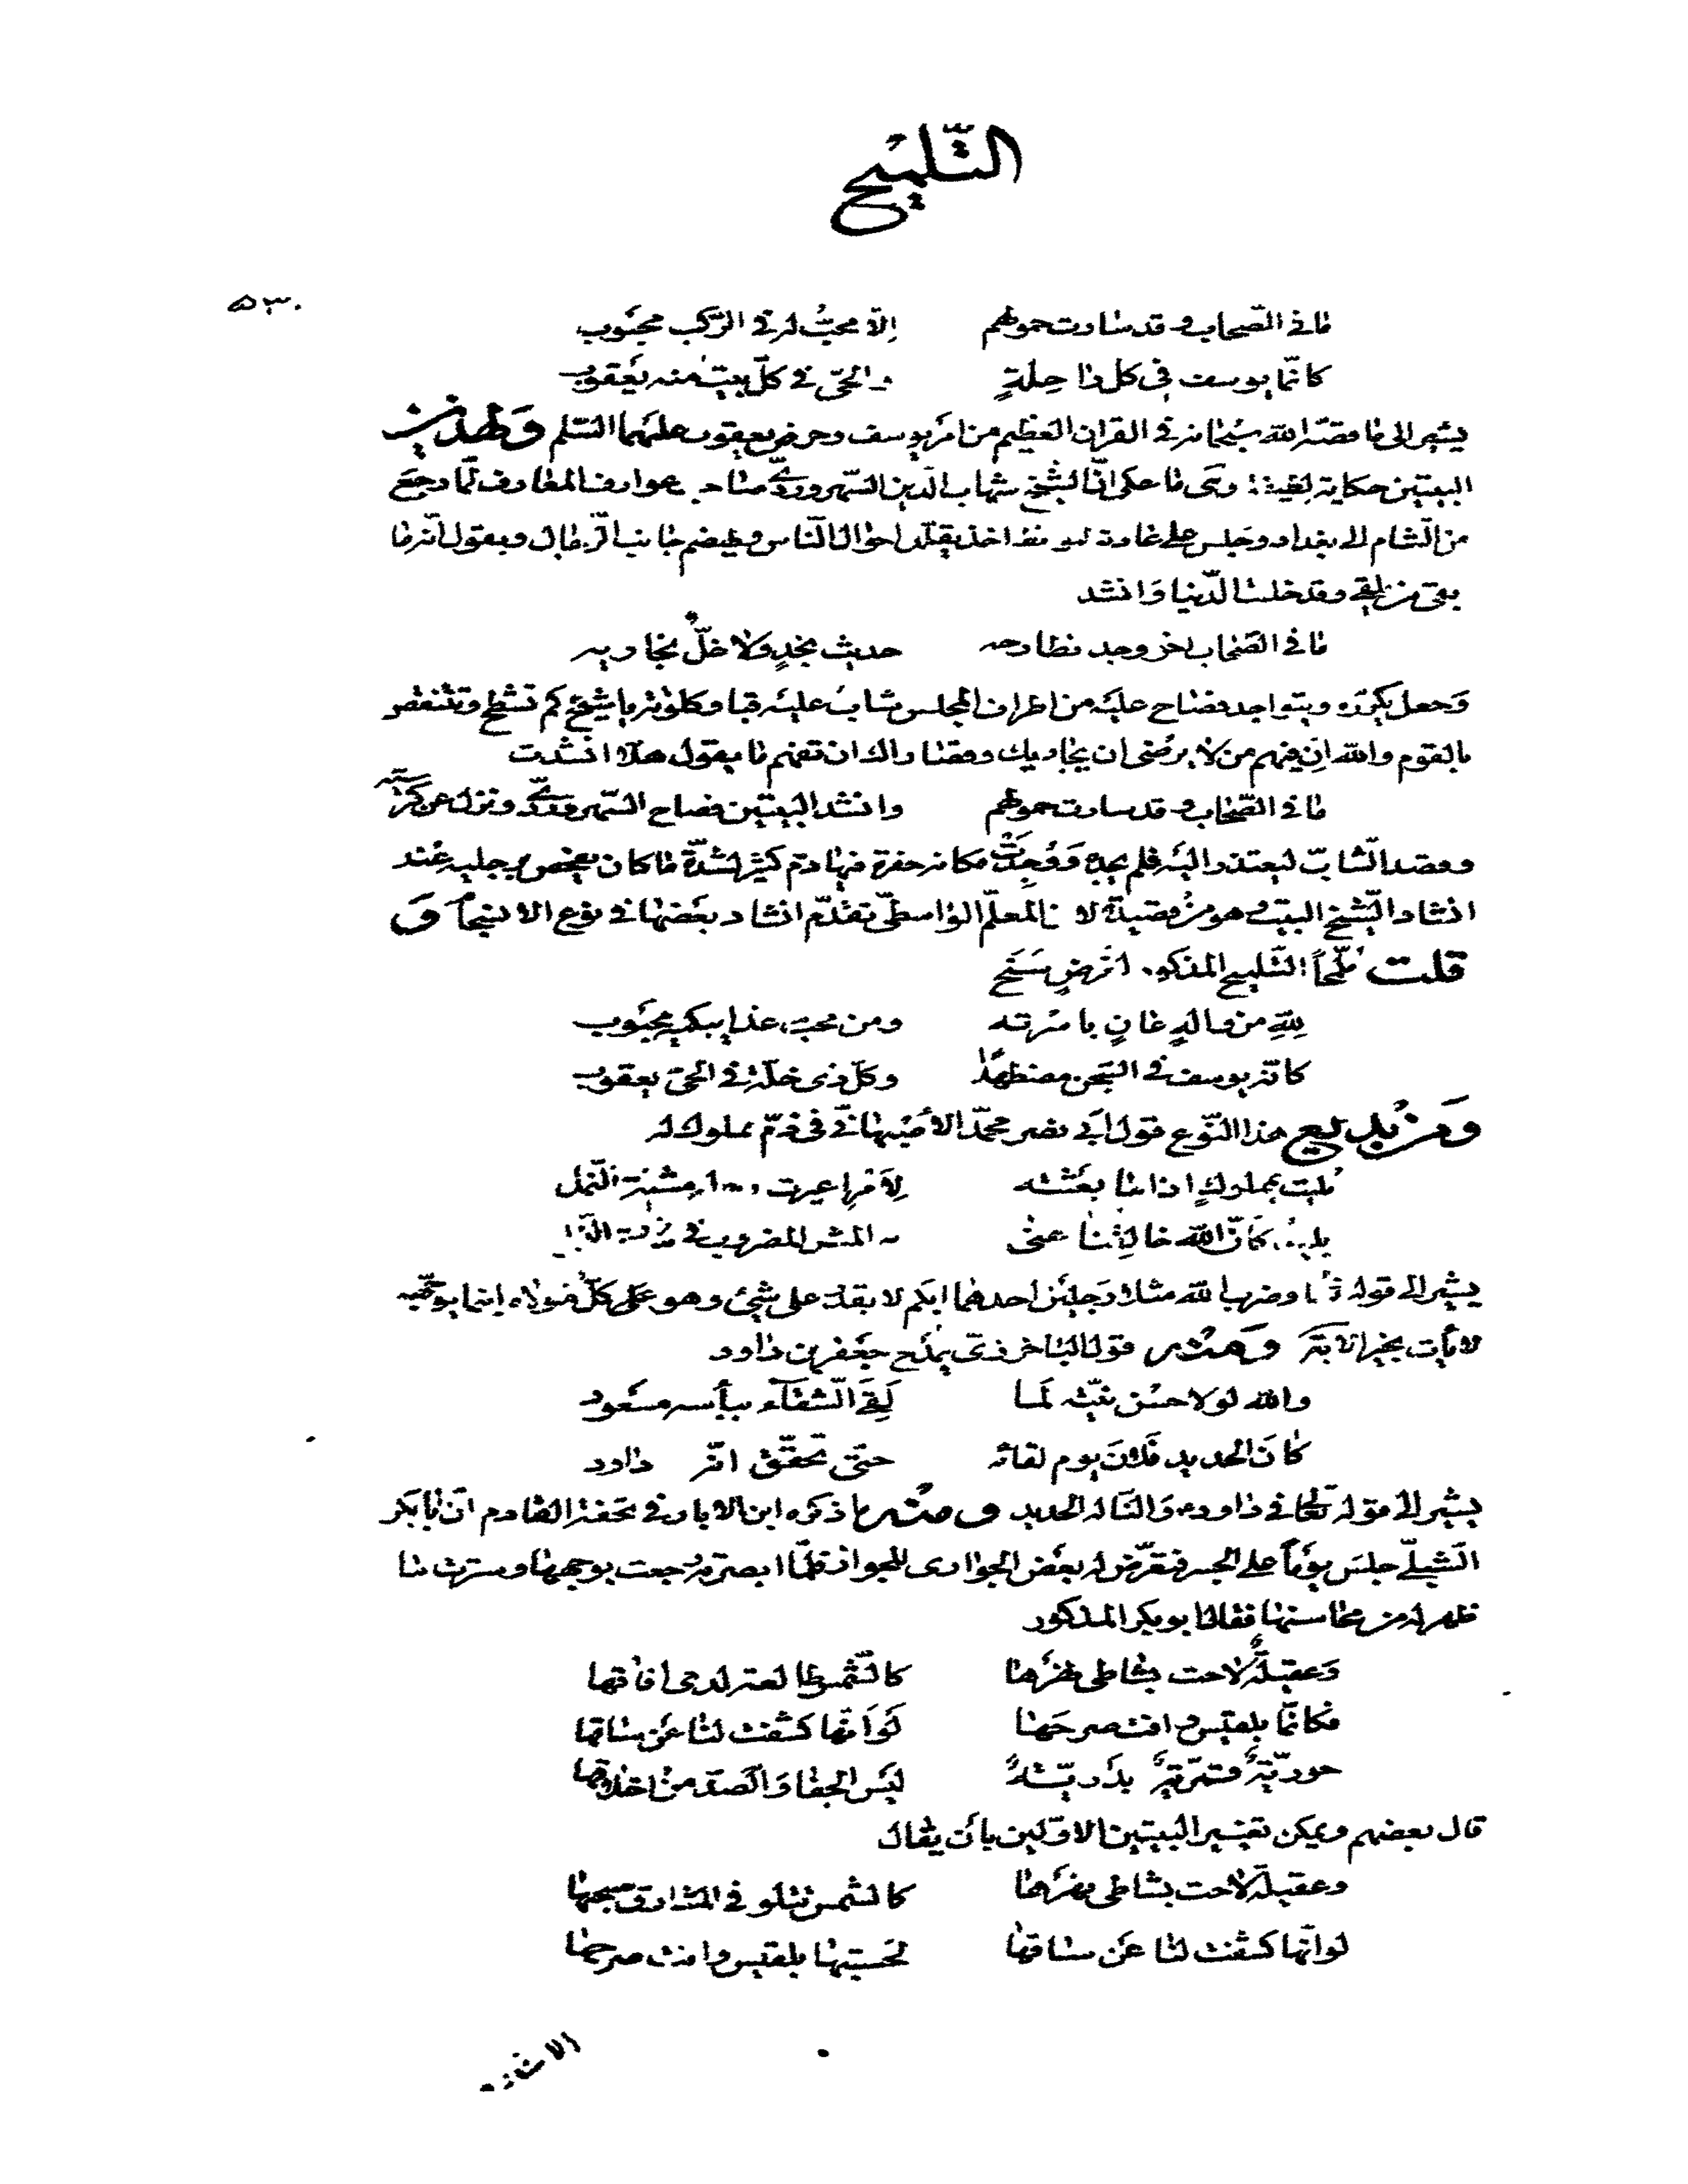 التّلميح
٥٣٠
ما في الصّحاب وقد سارت حمولهم إلّا محبّ له في الرّكب محبوب
كانّما يوسف في كل راحلةٍ والحيّ في كلّ بيت منه يعقوب
يشير الى ما قصّه الله سبحانه في القران العظيم من امر يوسف وحزن يعقوب عليهما السّلم ولهذين
البيتين حكاية لطيفة وهى ما حكى انّ الشّيخ شهاب الدّين السّهروردىّ صاحب عوارف المعارف لمّا رجع
من الشام الى بغداد وجلس على عادته اخذ يقلّل احوال النّاس ويهضم جانب الرّجال ويقول انّه ما
بقى من وقد خلت الدّنيا وانشد
ما في الصّحاب اخو وجد نطارحه حديث نجدٍ ولا خلّ نجاريه
وجعل يكرّره ويتواجد فصاح عليه من اطراف المجلس شاب عليه قبا وكلوته يا شيخ كم تشطح وتنتقص
بالقوم والله انّ فيهم من لا يرضى ان يجاريك وقصاراك ان تفهم ما يقول هلّا انشدت
ما في الصّحاب وقد سارت حمولهم وانشد البيتين فصاح السّهروردىّ ونزل عن كرسيّه
وقصد الشّابّ ليعتذر اليه فلم يجده ووجدت مكانه حفرة فيها دم كثير لشدّة ما كان يفحص برجليه عند
انشاد الشّيخ البيت وهو من قصيدة لابن المعلّم الواسطىّ تقدّم انشاد بعضها في نوع الانسجام و
قلت ملمّحاً التّلميح المذكور
للهِ من والدٍ عانٍ باسرته ومن محبّ عذابيكم محبوب
كانّه يوسف في السّجن مضطهداً وكلّ ذى خلّة في الحىّ يعقوب
ومن بديع هذا النّوع قول ابى نصر محمّد الاصبهانىّ في ذمّ مملوك له
بليت بمملوكٍ اذا ما بعثته لأمرٍ اعيرت رجله مشية النّمل
بليد كانّ الله خالقنا عنى به المثل المضروب في سورة النّحل
يشير الى قوله تعالى وضرب الله مثلا رجلين احدهما ابكم لا يقدر على شىء وهو كلّ على مولاه اينما يوجّهه
لا يأت بخير الاية ومنه قول الباخرزى يمدح جعفر بن داود
والله لولا حسن نيّته لما لقى الشّقاء ببأسه مسعود
كان الحديد فلان يوم لقائه حتى تحقّق انّه داود
يشير الى قوله تعالى في داود ع والنّا له الحديد ومنه ما ذكره ابن الابار في تحفة القادم انّ ابا بكر
الشّبلىّ جلس يوماً على الجسر فتعرّض له بعض الجوارى للجواز فلمّا ابصرته رجعت بوجهها وسترت ما
ظهر له من محاسنها فقال ابو بكر المذكور
وعقيلةٍ لاحت بشاطى نهرها كالشّمس طالعة لدى افاقها
فكانّها بلقيس وافت صرحها لو انّها كشفت لنا عن ساقها
حوريّةٌ قمريّةٌ بدريّةٌ ليس الجفا والصدّ من اخلاقها
قال بعضهم ويمكن تغيير البيتين الاوّلين بأن يقال
وعقيلة لاحت بشاطى نهرها كالشّمس تتلو في المشارق صبحها
لو انّها كشفت لنا عن ساقها لحسبتها بلقيس وافت صرحها